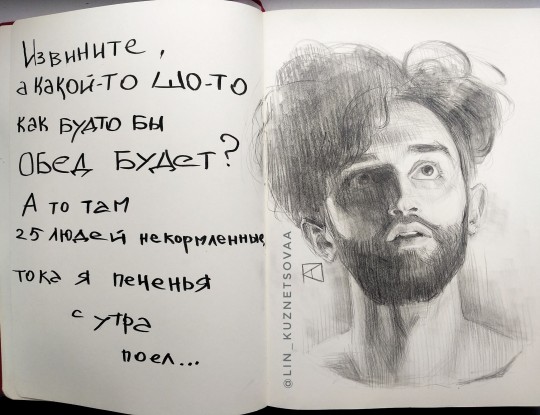 Извините,
а какой-то шо-то
как будто бы
обед будет?
А то там
25 людей некормленные,
тока я печенья
с утра
поел...
@LIN_KUZNETSOVAA